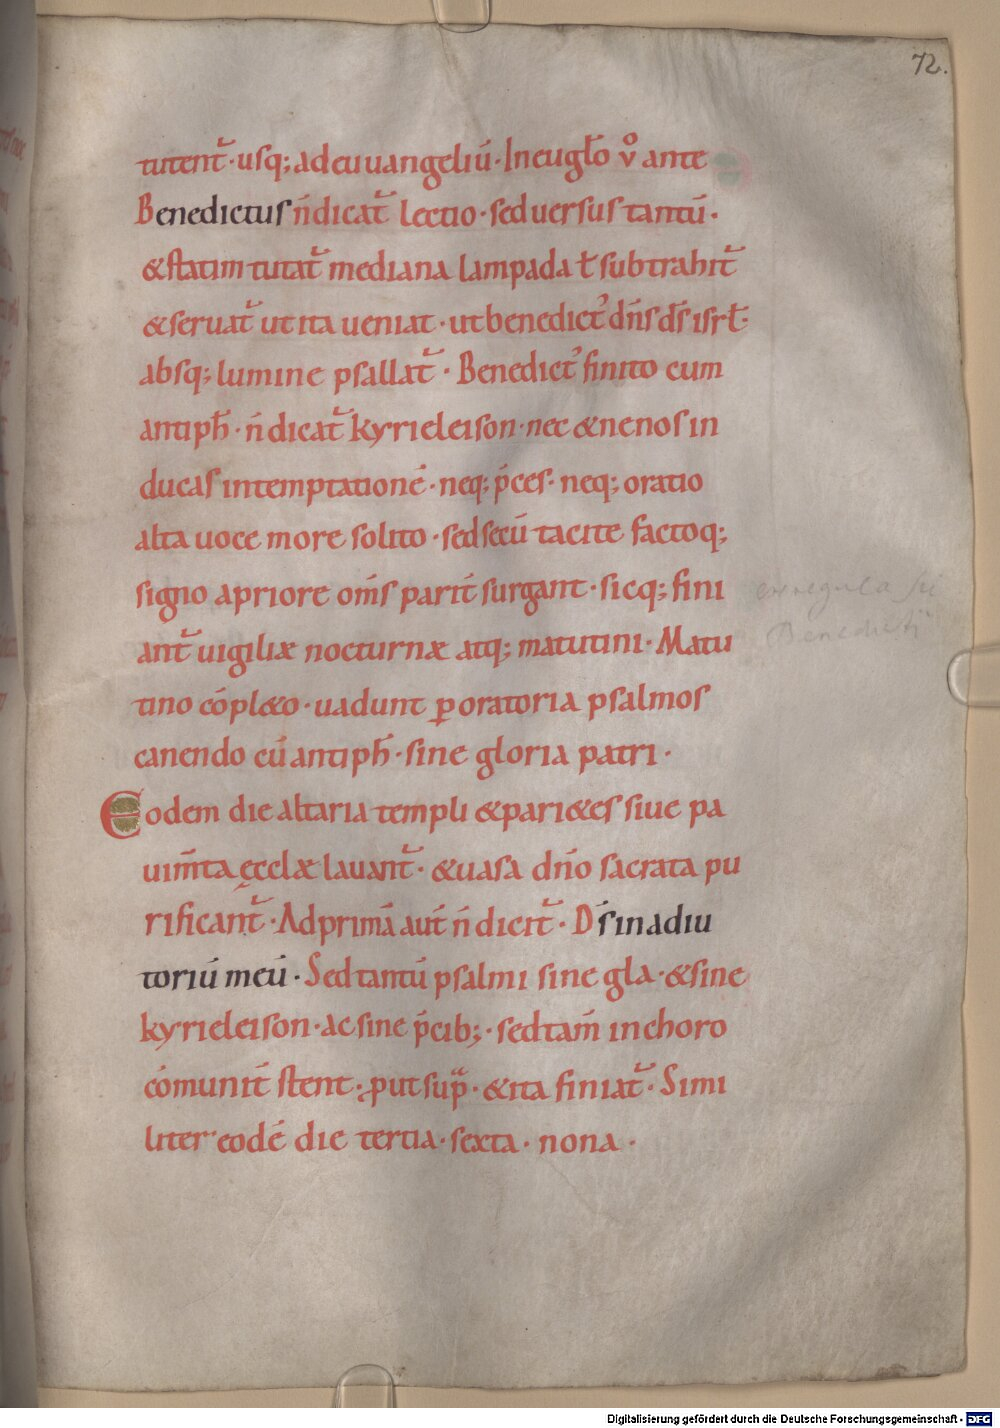 72.
tutent᷑·usq; ad euuangeliū· In eugło v̊ ante
Benedictus n̄ dicat᷑ lectio· sed uersus tantū·
& statim tutat᷑ mediana lampada ł subtrahit᷑
& seruat᷑ ut ita ueniat· ut benedict᾽ dn̄s ds̄ isrł·
absq; lumine psallat᷑· Benedict᾽ finito cum
antiph̄· n̄ dicat᷑ kyrieleison· nec & ne nos in
ducas in temptationē· neq; p̄ces· neq; oratio
alta uoce more solito· sed secū tacite factoq;
signo a priore om̄s parit̄ surgant· sicq; fini
ant᷑ uigiliæ nocturnæ atq; matutini· Matu
tino cōpl&o· uadunt ꝑ oratoria psalmos
canendo cū antiph̄· sine gloria patri·
Eodem die altaria templi & pari&es siue pa
uim̄ta ęcclæ lauant᷑· & uasa dn̄o sacrata pu
rificant᷑· Ad primā aut̄ n̄ dicit᷑· Ds̄ in adiu
toriū meū· Sed tantū psalmi sine gla· & sine
kyrieleison· ac sine p̄cib;· sed tam̄ in choro
cōmunit̄ stent· ꝓut sup̄· & ita finiat᷑· Simi
liter eodē die tertia· sexta· nona·
ex regula Sti
Benedicti
Digitalisierung gefördert durch die Deutsche Forschungsgemeinschaft - DFG